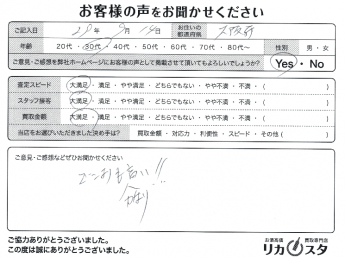 お客様の声をお聞かせください
ご記入日 29年 9月 19日 お住いの都道府県 大阪府
年齢 20代・30代・40代・50代・60代・70代・80代〜 性別 男・女
ご意見・ご感想を弊社ホームページにお客様の声として掲載させて頂いてもよろしいでしょうか? Yes・No
査定スピード 大満足・満足・やや満足・どちらでもない・やや不満・不満・( )
スタッフ接客 大満足・満足・やや満足・どちらでもない・やや不満・不満・( )
買取金額 大満足・満足・やや満足・どちらでもない・やや不満・不満・( )
当店をお選びいただきました決め手は? 買取金額・対応力・利便性・スピード・その他( )
ご意見・ご感想などぜひお聞かせください
ご協力ありがとうございました。
この度は誠にありがとうございました。
お酒高価 買取専門店
リカスタ